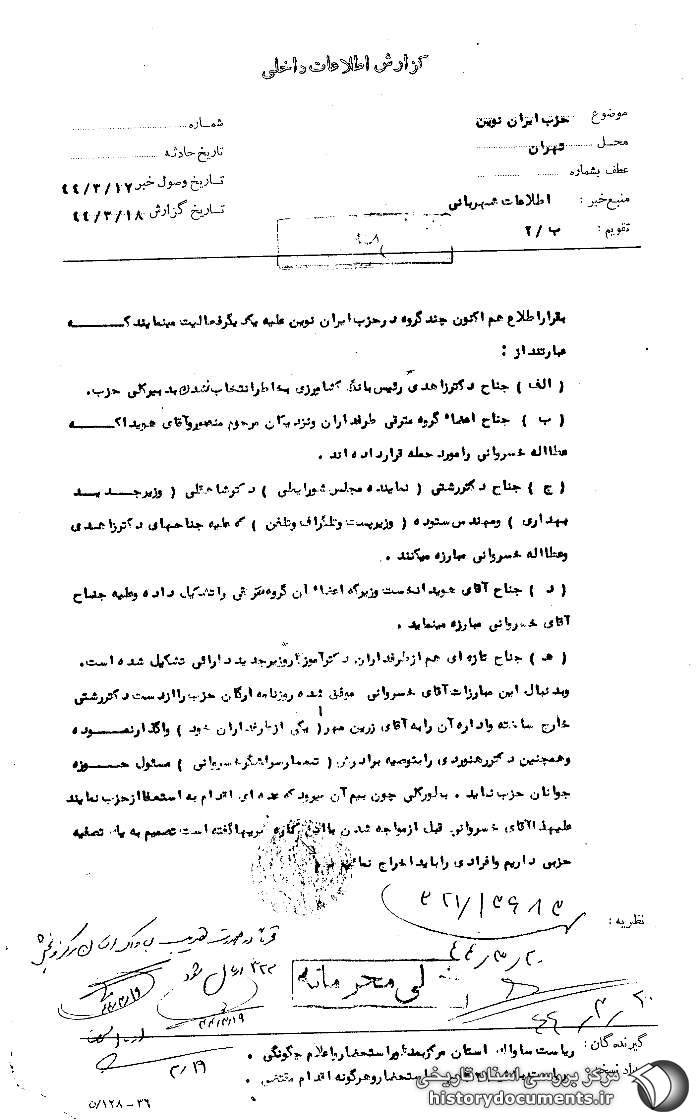 گزارش اطلاعات داخلی
موضوع حزب ایران نوین
شماره
محل تهران
تاریخ حادثه
عطف بشماره
تاریخ وصول خبر ۴۴/۳/۱۷
منبع خبر : اطلاعات شهربانی
تاریخ گزارش ۴۴/۳/۱۸
تقویم : ب/۲
بقرار اطلاع هم اکنون چند گروه در حزب ایران نوین علیه یکدیگر فعالیت مینمایند که
عبارتند از :
( الف ) جناح دکتر زاهدی رئیس بانک کشاورزی بخاطر انتخاب نشدن به دبیر کلی حزب.
( ب ) جناح اعضاء گروه مترقی طرفداران و نزدیکان مرحوم منصور و آقای هویدا که
عطااله خسروانی را مورد حمله قرار داده اند .
( ج ) جناح دکتر رشتی ( نماینده مجلس شورایملی ) دکتر شاهقلی ( وزیر جدید
بهداری ) و مهندس ستوده ( وزیر پست و تلگراف و تلفن ) که علیه جناحهای دکتر زاهدی
و عطااله خسروانی مبارزه میکنند .
( د ) جناح آقای هویدا نخست وزیر که اعضاء آن گروه مترقی را تشکیل داده و علیه جناح
آقای خسروانی مبارزه مینماید .
( هـ ) جناح تازه ای هم از طرفداران دکتر آموزگار وزیر جدید دارائی تشکیل شده است.
و بدنبال این مبارزات آقای خسروانی موفق شده روزنامه ارگان حزب را از دست دکتر رشتی
خارج ساخته و اداره آن را به آقای زرین مهر ( یکی از طرفداران خود ) واگذار نموده
و همچنین دکتر رهنوردی را بتوصیه برادرش ( تیمسار سرلشگر خسروانی ) مسئول حوزه
جوانان حزب نماید . بطور کلی چون بیم آن میرود که عده ای اقدام به استعفا از حزب نمایند
علیهذا آقای خسروانی قبل از مواجه شدن با این گفته است تصمیم به یک تصفیه
حزبی داریم و افرادی را باید اخراج نمائیم
نظریه :
۳۲۱/۱۳۶۸۳
۴۴/۳/۲۰
خیلی محرمانه
۳۲۳ ارسال شود
۴۴/۳/۱۹
۴۴/۳/۱۹
۴۴/۳/۲۰
۳/۱۹
گیرندگان :
ریاست ساواک استان مرکز بمنظور استحضار و اعلام چگونگی .
استحضار و هرگونه اقدام مقتضی .
۵/۱۲۸-۳۶
مرکز بررسی اسناد تاریخی
historydocuments.ir